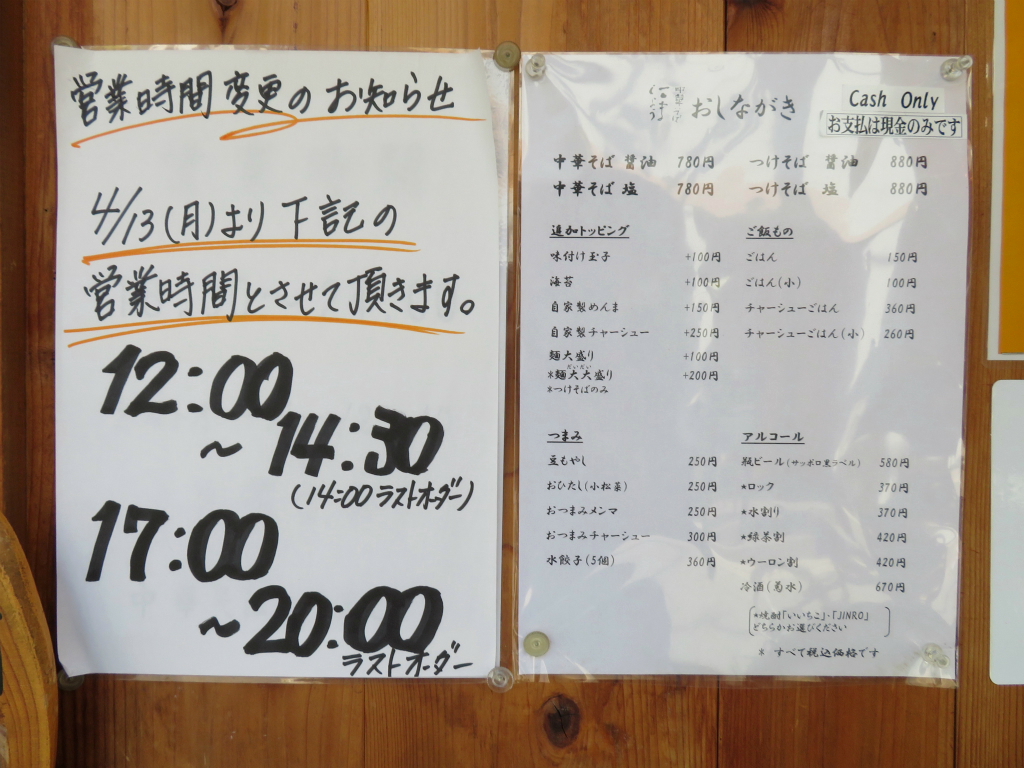 営業時間変更のお知らせ
4/13(月)より下記の
営業時間とさせて頂きます。
12:00
~14:30
(14:00 ラストオーダー)
17:00
~20:00
ラストオーダー
おしながき
Cash Only
お支払は現金のみです
中華そば 醤油 780円 つけそば 醤油 880円
中華そば 塩 780円 つけそば 塩 880円
追加トッピング
味付け玉子 +100円
海苔 +100円
自家製めんま +150円
自家製チャーシュー +250円
麺大盛り +100円
だいだい
*麺大大盛り +200円
*つけそばのみ
ご飯もの
ごはん 150円
ごはん(小) 100円
チャーシューごはん 360円
チャーシューごはん(小) 260円
つまみ
豆もやし 250円
おひたし(小松菜) 250円
おつまみメンマ 250円
おつまみチャーシュー 300円
水餃子(5個) 360円
アルコール
瓶ビール(サッポロ黒ラベル) 580円
*ロック 370円
*水割り 370円
*緑茶割 420円
*ウーロン割 420円
冷酒(菊水) 670円
*焼酎「いいちこ」・「JINRO」
どちらかお選びください
* すべて税込価格です